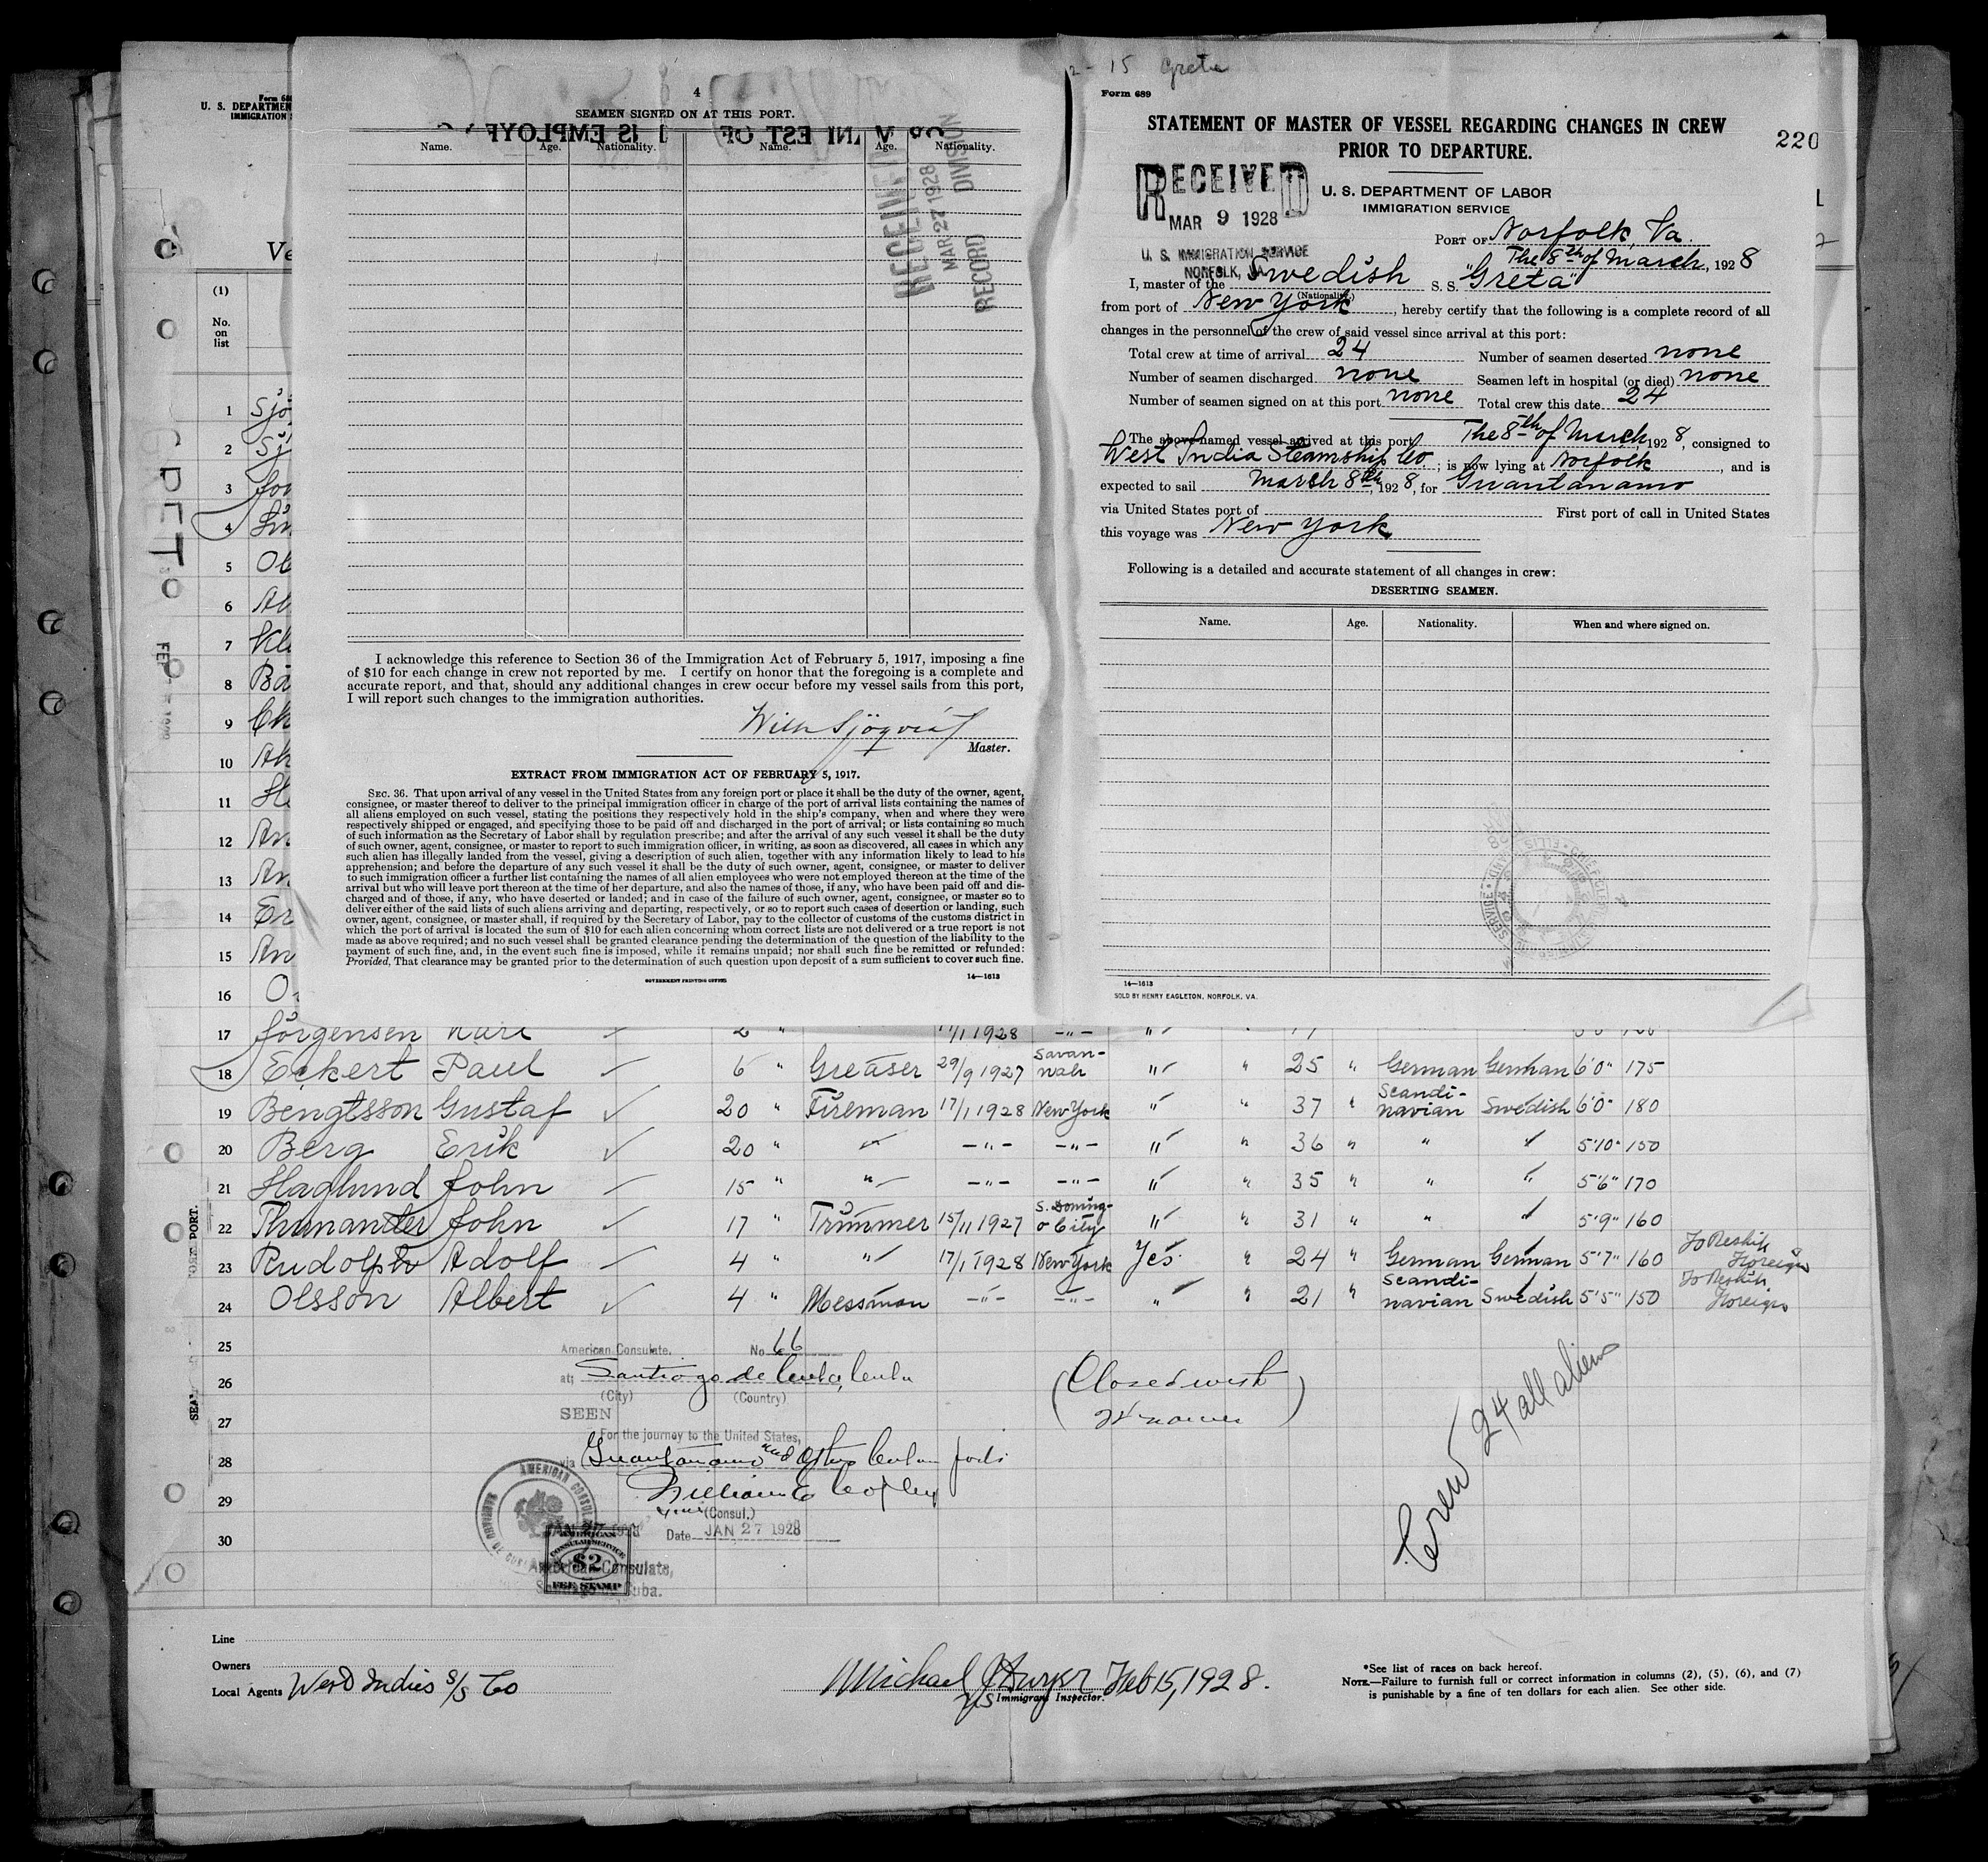 4
SEAMEN SIGNED ON AT THIS PORT.
Name. Age. Nationality. Name. Age. Nationality.
RECEIVED
MAR 27 1928
RECORD DIVISION
I acknowledge this reference to Section 36 of the Immigration Act of February 5, 1917, imposing a fine
of $10 for each change in crew not reported by me. I certify on honor that the foregoing is a complete and
accurate report, and that, should any additional changes in crew occur before my vessel sails from this port,
I will report such changes to the immigration authorities.
Wilh Sjöqvist
Master.
EXTRACT FROM IMMIGRATION ACT OF FEBRUARY 5, 1917.
SEC. 36. That upon arrival of any vessel in the United States from any foreign port or place it shall be the duty of the owner, agent,
consignee, or master thereof to deliver to the principal immigration officer in charge of the port of arrival lists containing the names of
all aliens employed on such vessel, stating the positions they respectively hold in the ship's company, when and where they were
respectively shipped or engaged, and specifying those to be paid off and discharged in the port of arrival; or lists containing so much
of such information as the Secretary of Labor shall by regulation prescribe; and after the arrival of any such vessel it shall be the duty
of such owner, agent, consignee, or master to report to such immigration officer, in writing, as soon as discovered, all cases in which any
such alien has illegally landed from the vessel, giving a description of such alien, together with any information likely to lead to his
apprehension; and before the departure of any such vessel it shall be the duty of such owner, agent, consignee, or master to deliver
to such immigration officer a further list containing the names of all alien employees who were not employed thereon at the time of the
arrival but who will leave port thereon at the time of her departure, and also the names of those, if any, who have been paid off and dis-
charged and of those, if any, who have deserted or landed; and in case of the failure of such owner, agent, consignee, or master so to
deliver either of the said lists of such aliens arriving and departing, respectively, or so to report such cases of desertion or landing, such
owner, agent, consignee, or master shall, if required by the Secretary of Labor, pay to the collector of customs of the customs district in
which the port of arrival is located the sum of $10 for each alien concerning whom correct lists are not delivered or a true report is not
made as above required; and no such vessel shall be granted clearance pending the determination of the question of the liability to the
payment of such fine, and, in the event such fine is imposed, while it remains unpaid; nor shall such fine be remitted or refunded:
Provided, That clearance may be granted prior to the determination of such question upon deposit of a sum sufficient to cover such fine.
GOVERNMENT PRINTING OFFICE 14—1613
15 Greta
Form 689
STATEMENT OF MASTER OF VESSEL REGARDING CHANGES IN CREW
PRIOR TO DEPARTURE.
220
RECEIVED
MAR 9 1928
U. S. IMMIGRATION SERVICE
NORFOLK, VA.
U. S. DEPARTMENT OF LABOR
IMMIGRATION SERVICE
PORT OF Norfolk, Va.
The 8th of March, 1928
I, master of the Swedish S. S. "Greta"
(Nationality.)
from port of New York, hereby certify that the following is a complete record of all
changes in the personnel of the crew of said vessel since arrival at this port:
Total crew at time of arrival 24 Number of seamen deserted none
Number of seamen discharged none Seamen left in hospital (or died) none
Number of seamen signed on at this port none Total crew this date 24
The above-named vessel arrived at this port The 8th of March, 1928, consigned to
West India Steamship Co.; is now lying at Norfolk, and is
expected to sail March 8th, 1928, for Guantanamo
via United States port of First port of call in United States
this voyage was New York
Following is a detailed and accurate statement of all changes in crew:
DESERTING SEAMEN.
Name. Age. Nationality. When and where signed on.
14—1613
SOLD BY HENRY EAGLETON, NORFOLK, VA.
Form 68
U. S. DEPARTMEN
IMMIGRATION
Ve
(1)
No.
on
list
1 Sjö
2 Sj
3
4
5
6
7
8 Bä
9
10
11
12 An
13 An
14 Er
15 An
16
17 Jörgensen Karl 2 " 17/1 1928 -"- "
18 Eckert Paul 6 " Greaser 29/9 1927 Savan-nah " " 25 " German German 6'0" 175
19 Bengtsson Gustaf 20 " Fireman 17/1 1928 New York " " 37 " Scandi-navian Swedish 6'0" 180
20 Berg Erik 20 " " -"- -"- " " 36 " " " 5'10" 150
21 Haglund John 15 " " -"- -"- " " 35 " " " 5'6" 170
22 Thunander John 17 " Trimmer 15/11 1927 S. Doming-o City " " 31 " " " 5'9" 160
23 Rudolph Adolf 4 " " 17/1 1928 New York Yes " 24 " German German 5'7" 160 To Reship Foreign
24 Olsson Albert 4 " Messman -"- -"- " " 21 " Scandi-navian Swedish 5'5" 150 To Reship Foreign
25
26
27
28
29
30
American Consulate. No. 66
at Santiago de Cuba, Cuba
(City) (Country)
SEEN
For the journey to the United States,
via Guantanamo and other Cuban ports
(Consul.)
Date JAN 27 1928
AMERICAN CONSULAR SERVICE
$2
FEE STAMP
American Consulate,
Santiago de Cuba.
(Closed with
24 names)
Crew 24 all aliens
Line
Owners
Local Agents West Indies S/S Co
Michael J Dwyer Feb 15, 1928.
US Immigrant Inspector.
*See list of races on back hereof.
NOTE.—Failure to furnish full or correct information in columns (2), (5), (6), and (7)
is punishable by a fine of ten dollars for each alien. See other side.